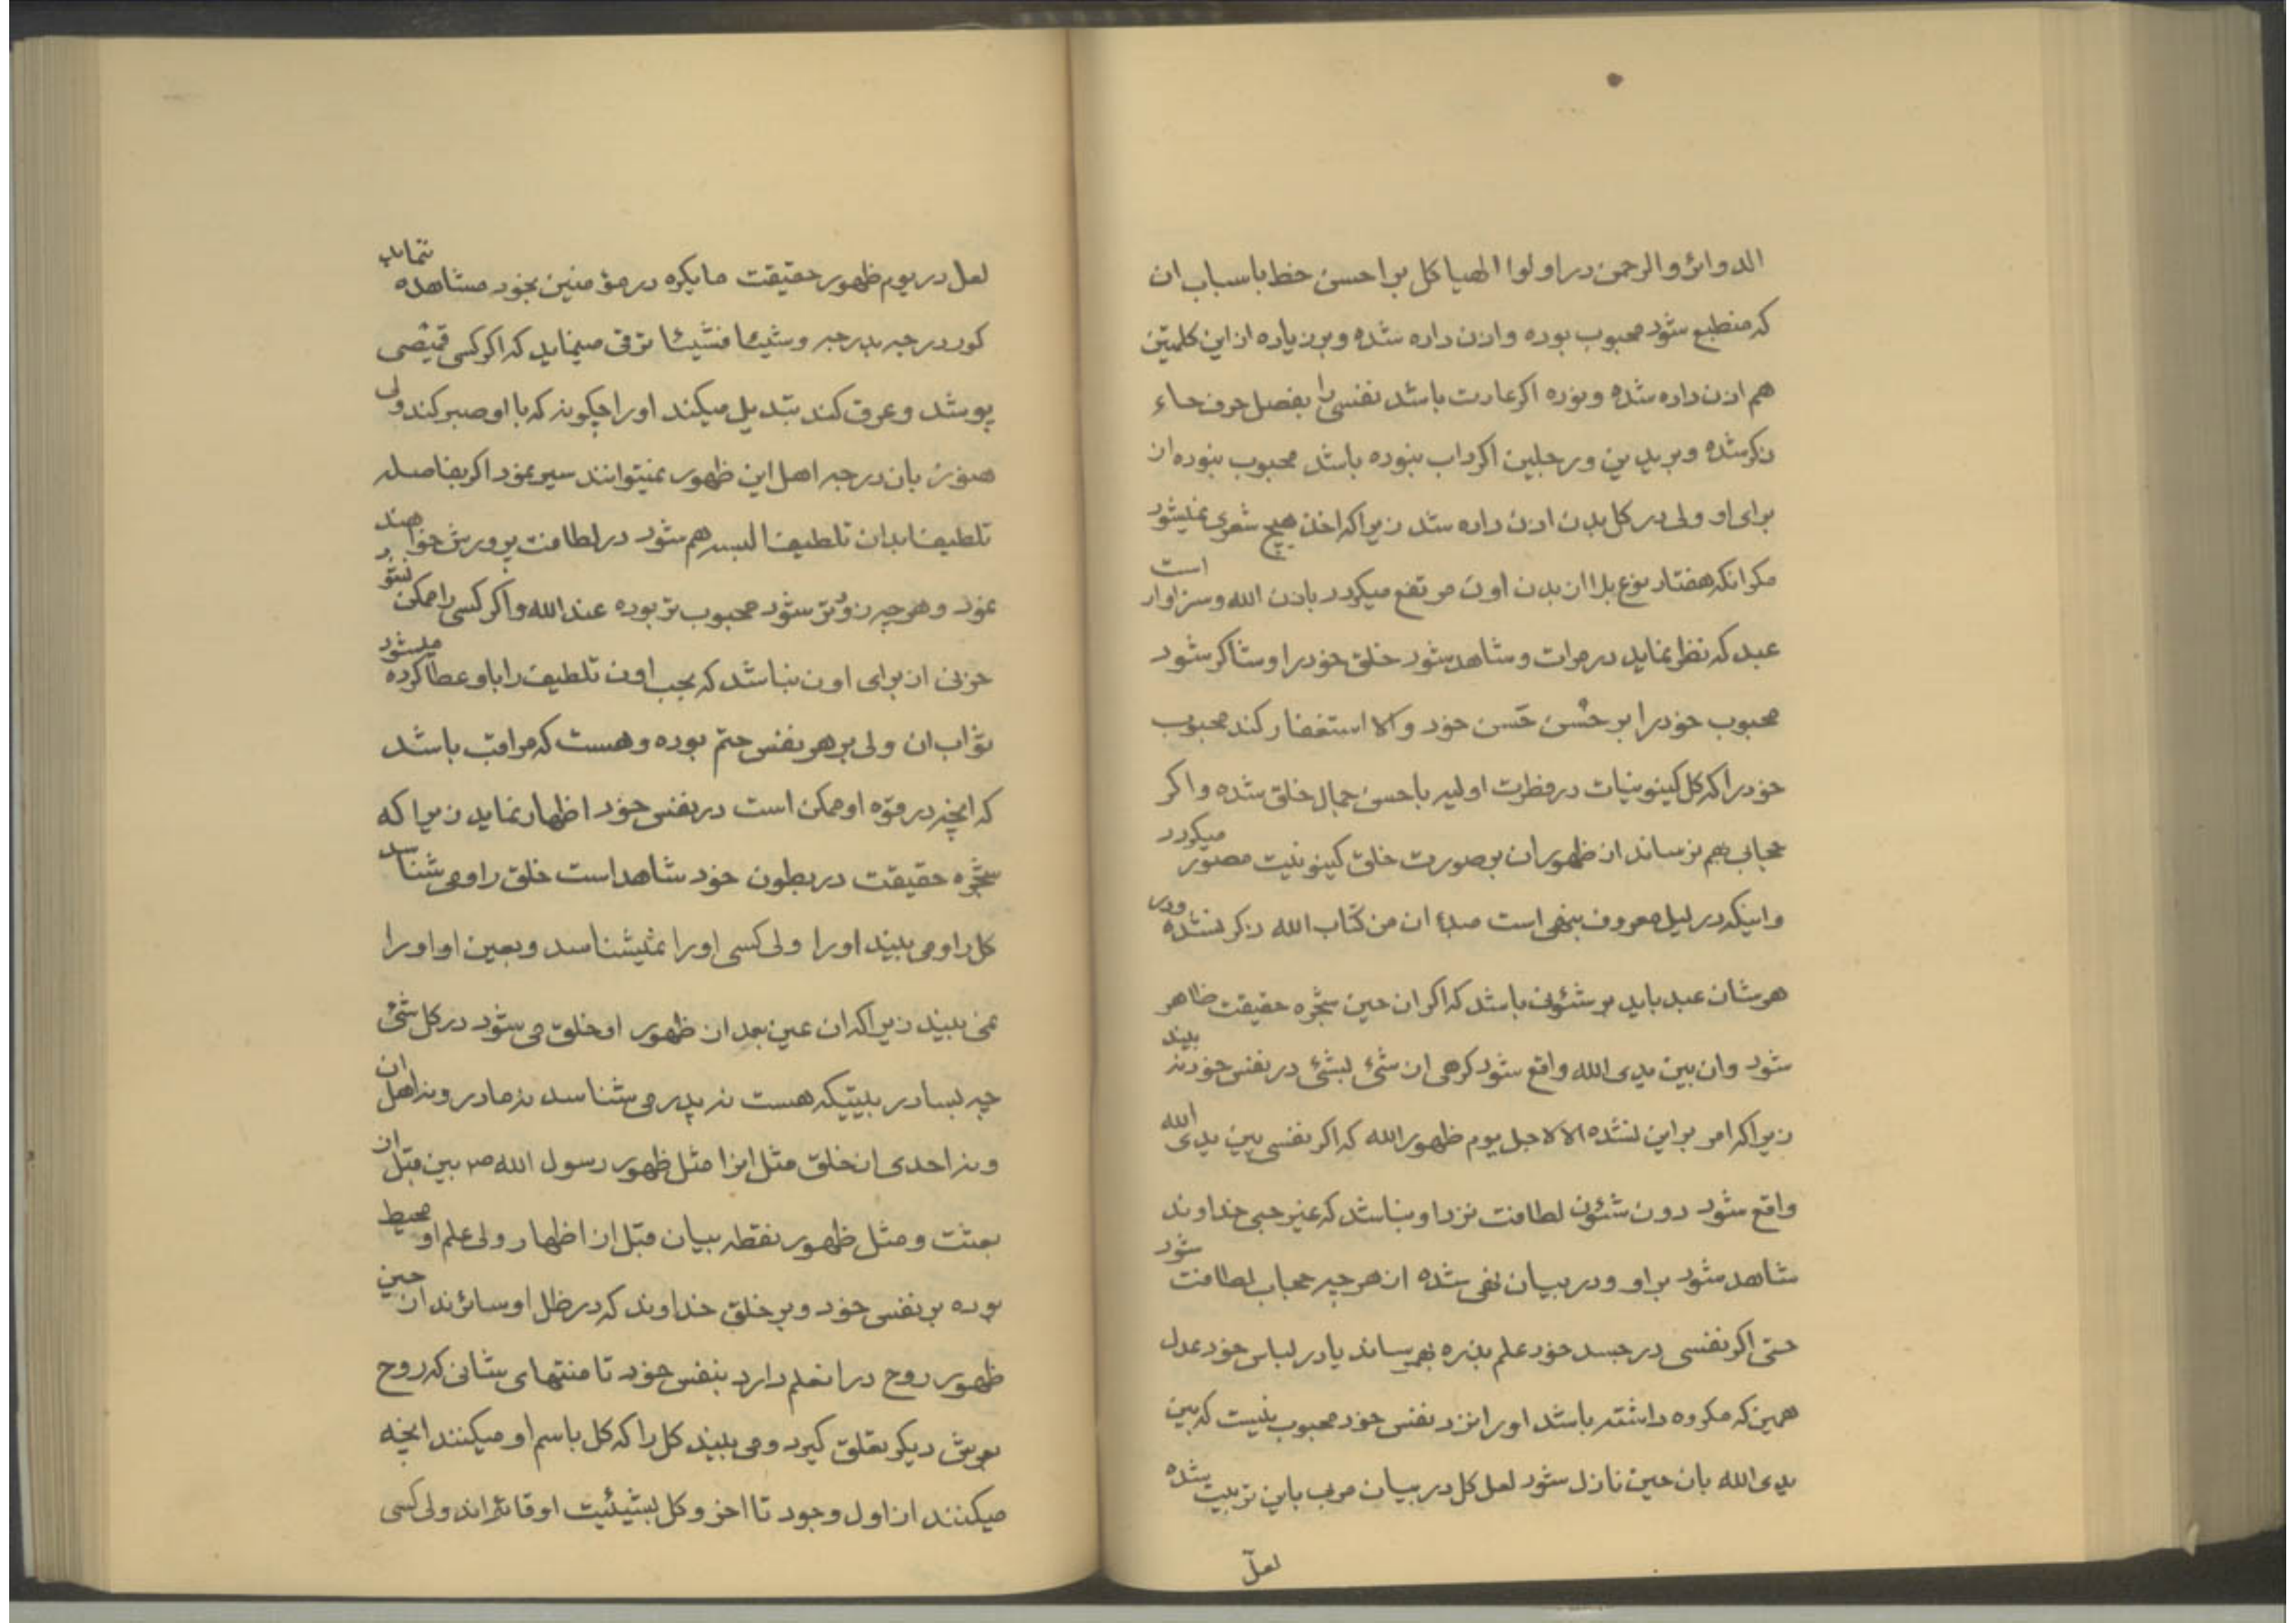 الدوائر والرحمن در اولوا الهیاکل براحسن خط باسباب ان
که منطبع شود محبوب بوده واذن داده شده وبر زیاده از این کلمتین
هم اذن داده شده وبوده اکر عادت باشد نفسی را بفصل حرف حاء
ذکر شده وبر یدین ورجلین اکر داب نبوده باشد محبوب نبوده از
برای او ولی در کل بدن اذن داده شد زیرا که اخذ هیچ شعری نمیشود
مکر انکه هفتاد نوع بلا از بدن اون مرتفع میکردد باذن الله وسزاوار است
عبد که نظر نماید در مرات وشاهد شود خلق خود را وشاکر شود
محبوب خود را بر حُسن حَسن خود والا استغفار کند محبوب
خود را که کل کینونیات در فطرت اولیه باحسن جمال خلق شده واکر
حجابی هم نرساند از ظهور ان بصورت خلق کینونیت مصور میکردد
واینکه در لیل معروف بنهی است مبدا ان من کتاب الله ذکر نشده ودر
هر شان عبد باید بر شئونی باشد که اکر ان حین شجره حقیقت ظاهر
شود وان بین یدی الله واقع شود کرهی از شیٔ لبشیٔ در نفس خود نه بیند
زیرا که امر بر این نشده الا لاجل یوم ظهور الله که اکر نفسی بین یدی الله
واقع شود دون شئون لطافت نزد او نباشد که غیر حبی خداوند
شاهد شود بر او ودر بیان نفی شده از هر چه حجاب لطافت شود
حتی اکر نفسی در جسد خود علم بذره بهم رساند یا در لباس خود عدل
همین که مکروه داشته باشد اورا نزد نفس خود محبوب نیست که بین
یدی الله بان حین نازل شود لعل کل در بیان مربی باین تربیت شده
لعل
لعل در یوم ظهور حقیقت ما یکره در مؤمنین بخود مشاهده ننمایند
کور درجه بدرجه وشیئا فشیئا ترقی مینماید که اکر کسی قمیصی
پوشد وعرق کند تبدیل میکند اورا چکونه که با او صبر کند ولی
هنوز بان درجه اهل این ظهور نمیتوانند سیر نمود اکر بفاصله
تلطیف ابدان تلطیف البسه هم شود در لطافت پرورش خواهند
نمود وهر چه زودتر شود محبوب تر بوده عند الله واکر کسی را ممکن نشود بر
حزنی از برای اون نباشد که بحب اون تلطیف را باو عطا کرده میشود
ثواب ان ولی بر هر نفس حتم بوده وهست که مراقب باشد
که انچه در قوه او ممکن است در نفس خود اظهار نماید زیرا که
شجره حقیقت در بطون خود شاهد است خلق را ومی شناسد
کل را ومی بیند اورا ولی کسی اورا نمیشناسد وبعین او اورا
نمی بیند زیرا که ان عین بعد از ظهور او خلق می شود در کل شیٔ
چه بسا در بیتیکه هست نه پدر می شناسد نه مادر ونه اهل ان
ونه احدی از خلق مثل انرا مثل ظهور رسول الله ص بین قبل از
بعثت ومثل ظهور نقطه بیان قبل از اظهار ولی علم او محیط
بوده بر نفس خود وبر خلق خداوند که در ظل او سائرند از حین
ظهور روح در ان علم دارد بنفس خود تا منتهای شانی که روح
بعرش دیکر تعلق کیرد ومی بیند کل را که کل باسم او میکنند انچه
میکنند از اول وجود تا اخر وکل بشیئیت او قائم اند ولی کسی